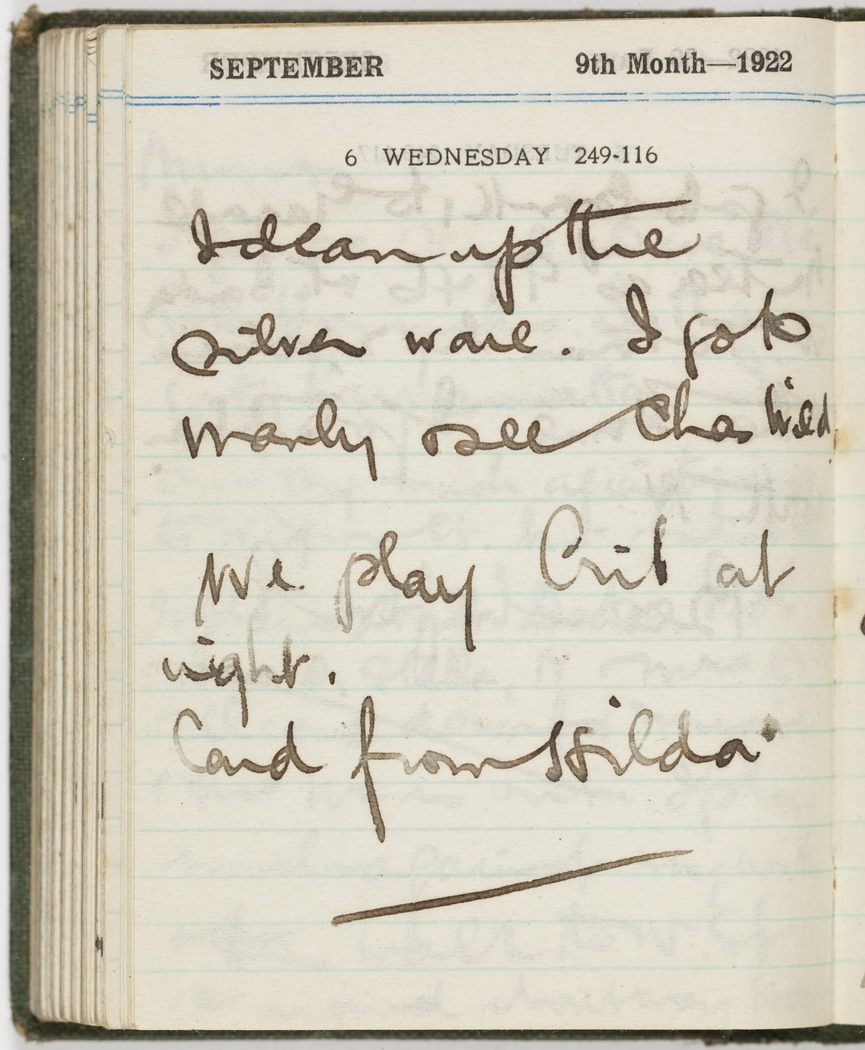 SEPTEMBER 9th Month—1922
6 WEDNESDAY 249-116
I clean up the
silver ware. I go to
Manly & see Chas Wild
We play Crib at
night.
Card from Hilda